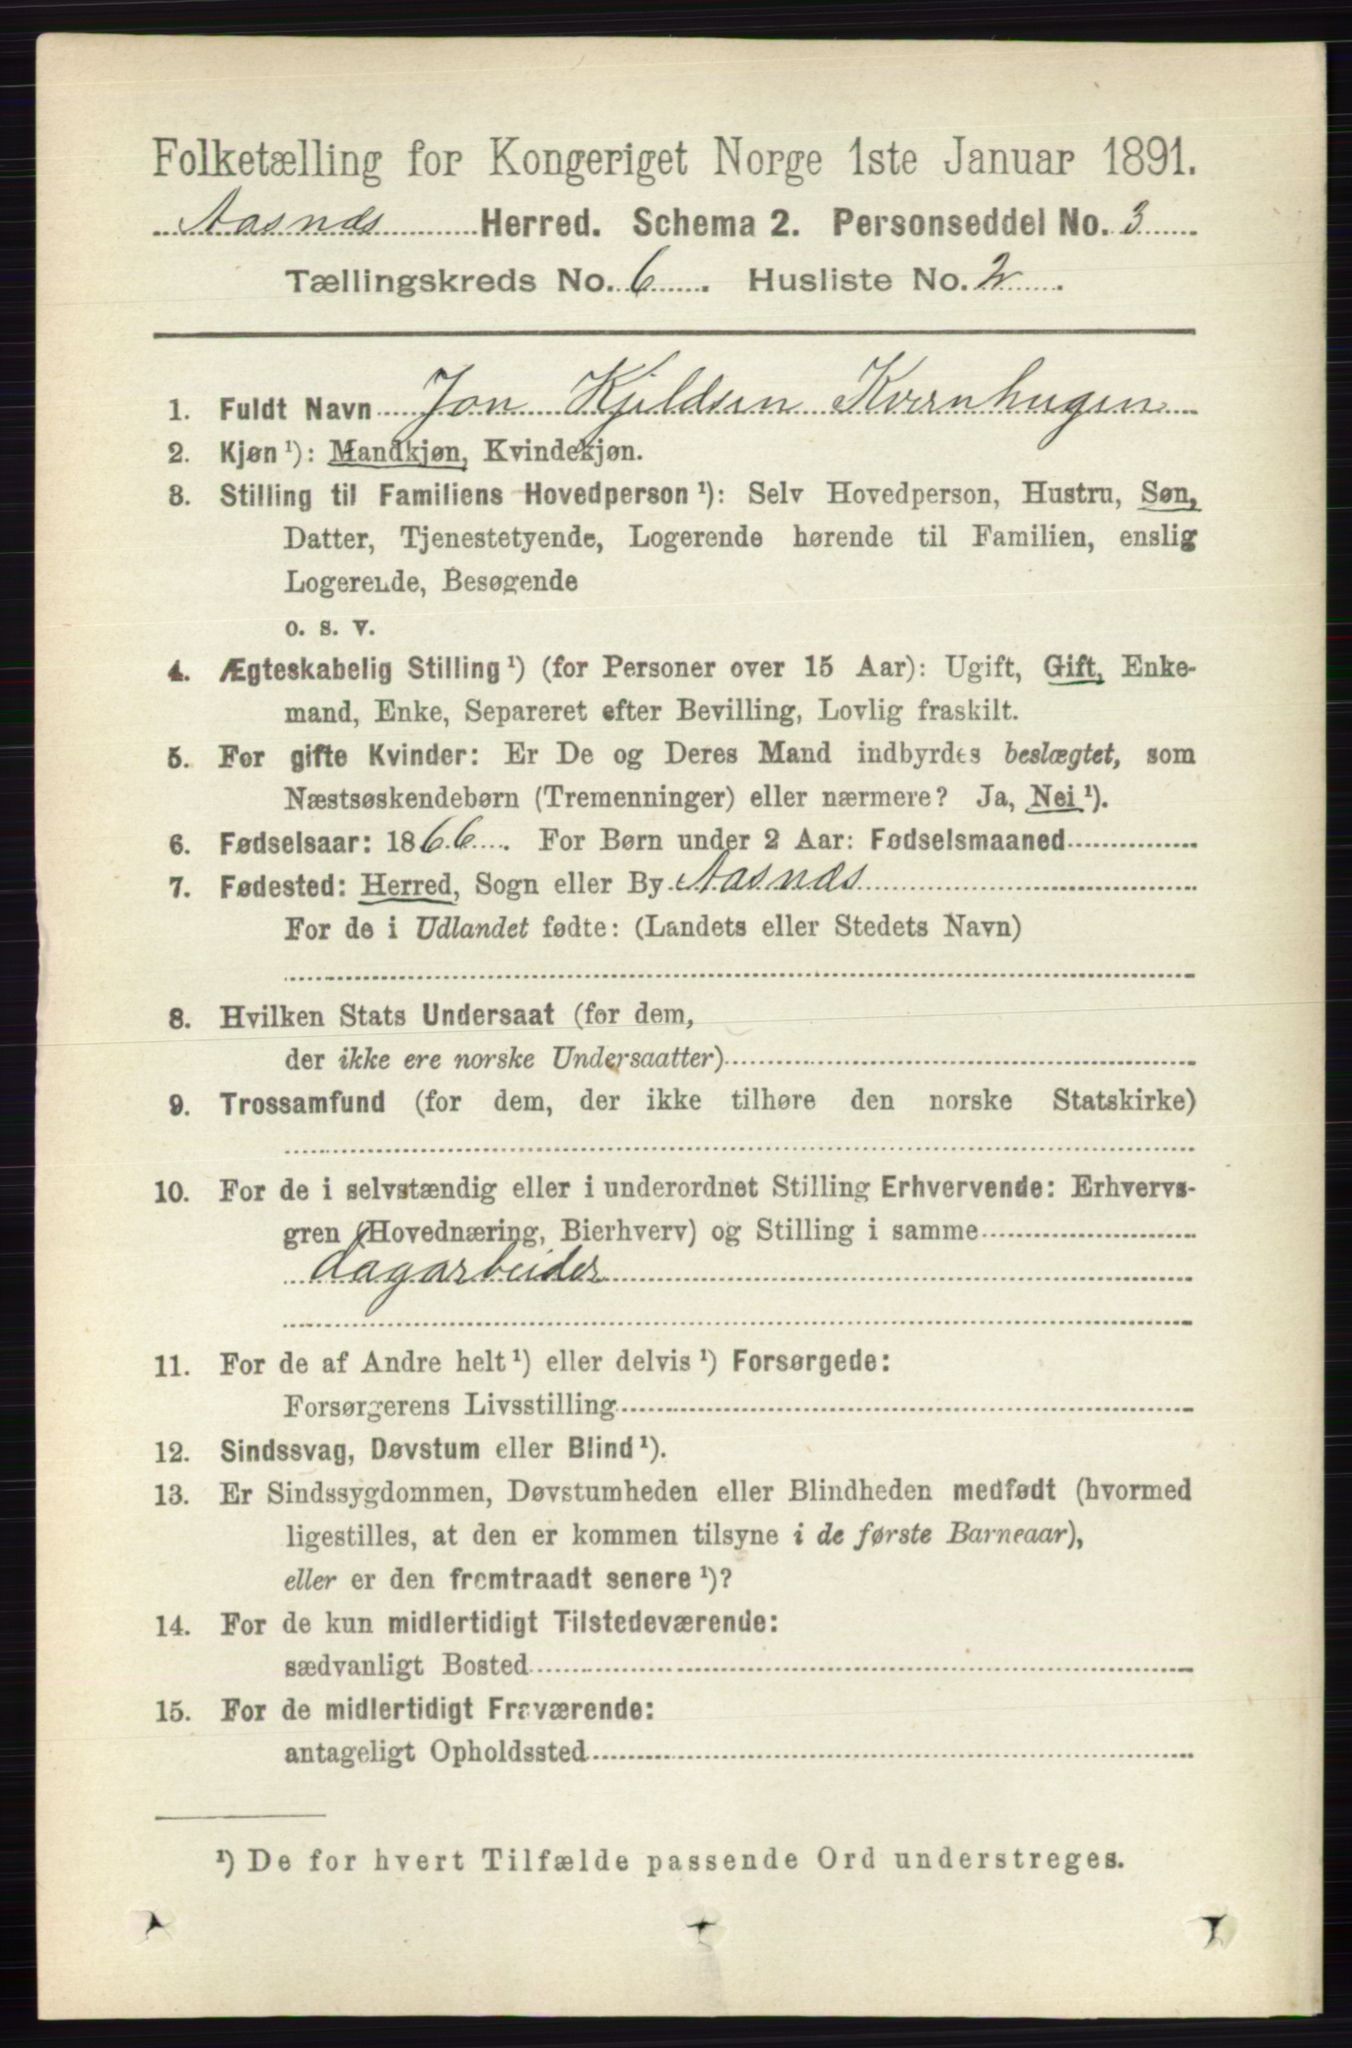 Folketælling for Kongeriget Norge 1ste Januar 1891.
Aasnæs Herred. Schema 2. Personseddel No. 3
Tællingskreds No. 6. Husliste No. 2.
1. Fuldt Navn Jon Kjeldsen Kvernhugen
2. Kjøn¹): Mandkjøn, Kvindekjøn.
3. Stilling til Familiens Hovedperson¹): Selv Hovedperson, Hustru, Søn,
Datter, Tjenestetyende, Logerende hørende til Familien, enslig
Logerende, Besøgende
o. s. v.
4. Ægteskabelig Stilling¹) (for Personer over 15 Aar): Ugift, Gift, Enke-
mand, Enke, Separeret efter Bevilling, Lovlig fraskilt.
5. For gifte Kvinder: Er De og Deres Mand indbyrdes beslægtet, som
Næstsøskendebørn (Tremenninger) eller nærmere? Ja, Nei¹).
6. Fødselsaar: 1866. For Børn under 2 Aar: Fødselsmaaned
7. Fødested: Herred, Sogn eller By Aasnæs
For de i Udlandet fødte: (Landets eller Stedets Navn)
8. Hvilken Stats Undersaat (for dem,
der ikke ere norske Undersaatter)
9. Trossamfund (for dem, der ikke tilhøre den norske Statskirke)
10. For de i selvstændig eller i underordnet Stilling Erhvervende: Erhvervs-
gren (Hovednæring, Bierhverv) og Stilling i samme
dagarbeider
11. For de af Andre helt¹) eller delvis¹) Forsørgede:
Forsørgerens Livsstilling
12. Sindssvag, Døvstum eller Blind¹).
13. Er Sindssygdommen, Døvstumheden eller Blindheden medfødt (hvormed
ligestilles, at den er kommen tilsyne i de første Barneaar),
eller er den fremtraadt senere¹)?
14. For de kun midlertidigt Tilstedeværende:
sædvanligt Bosted
15. For de midlertidigt Fraværende:
antageligt Opholdssted
¹) De for hvert Tilfælde passende Ord understreges.